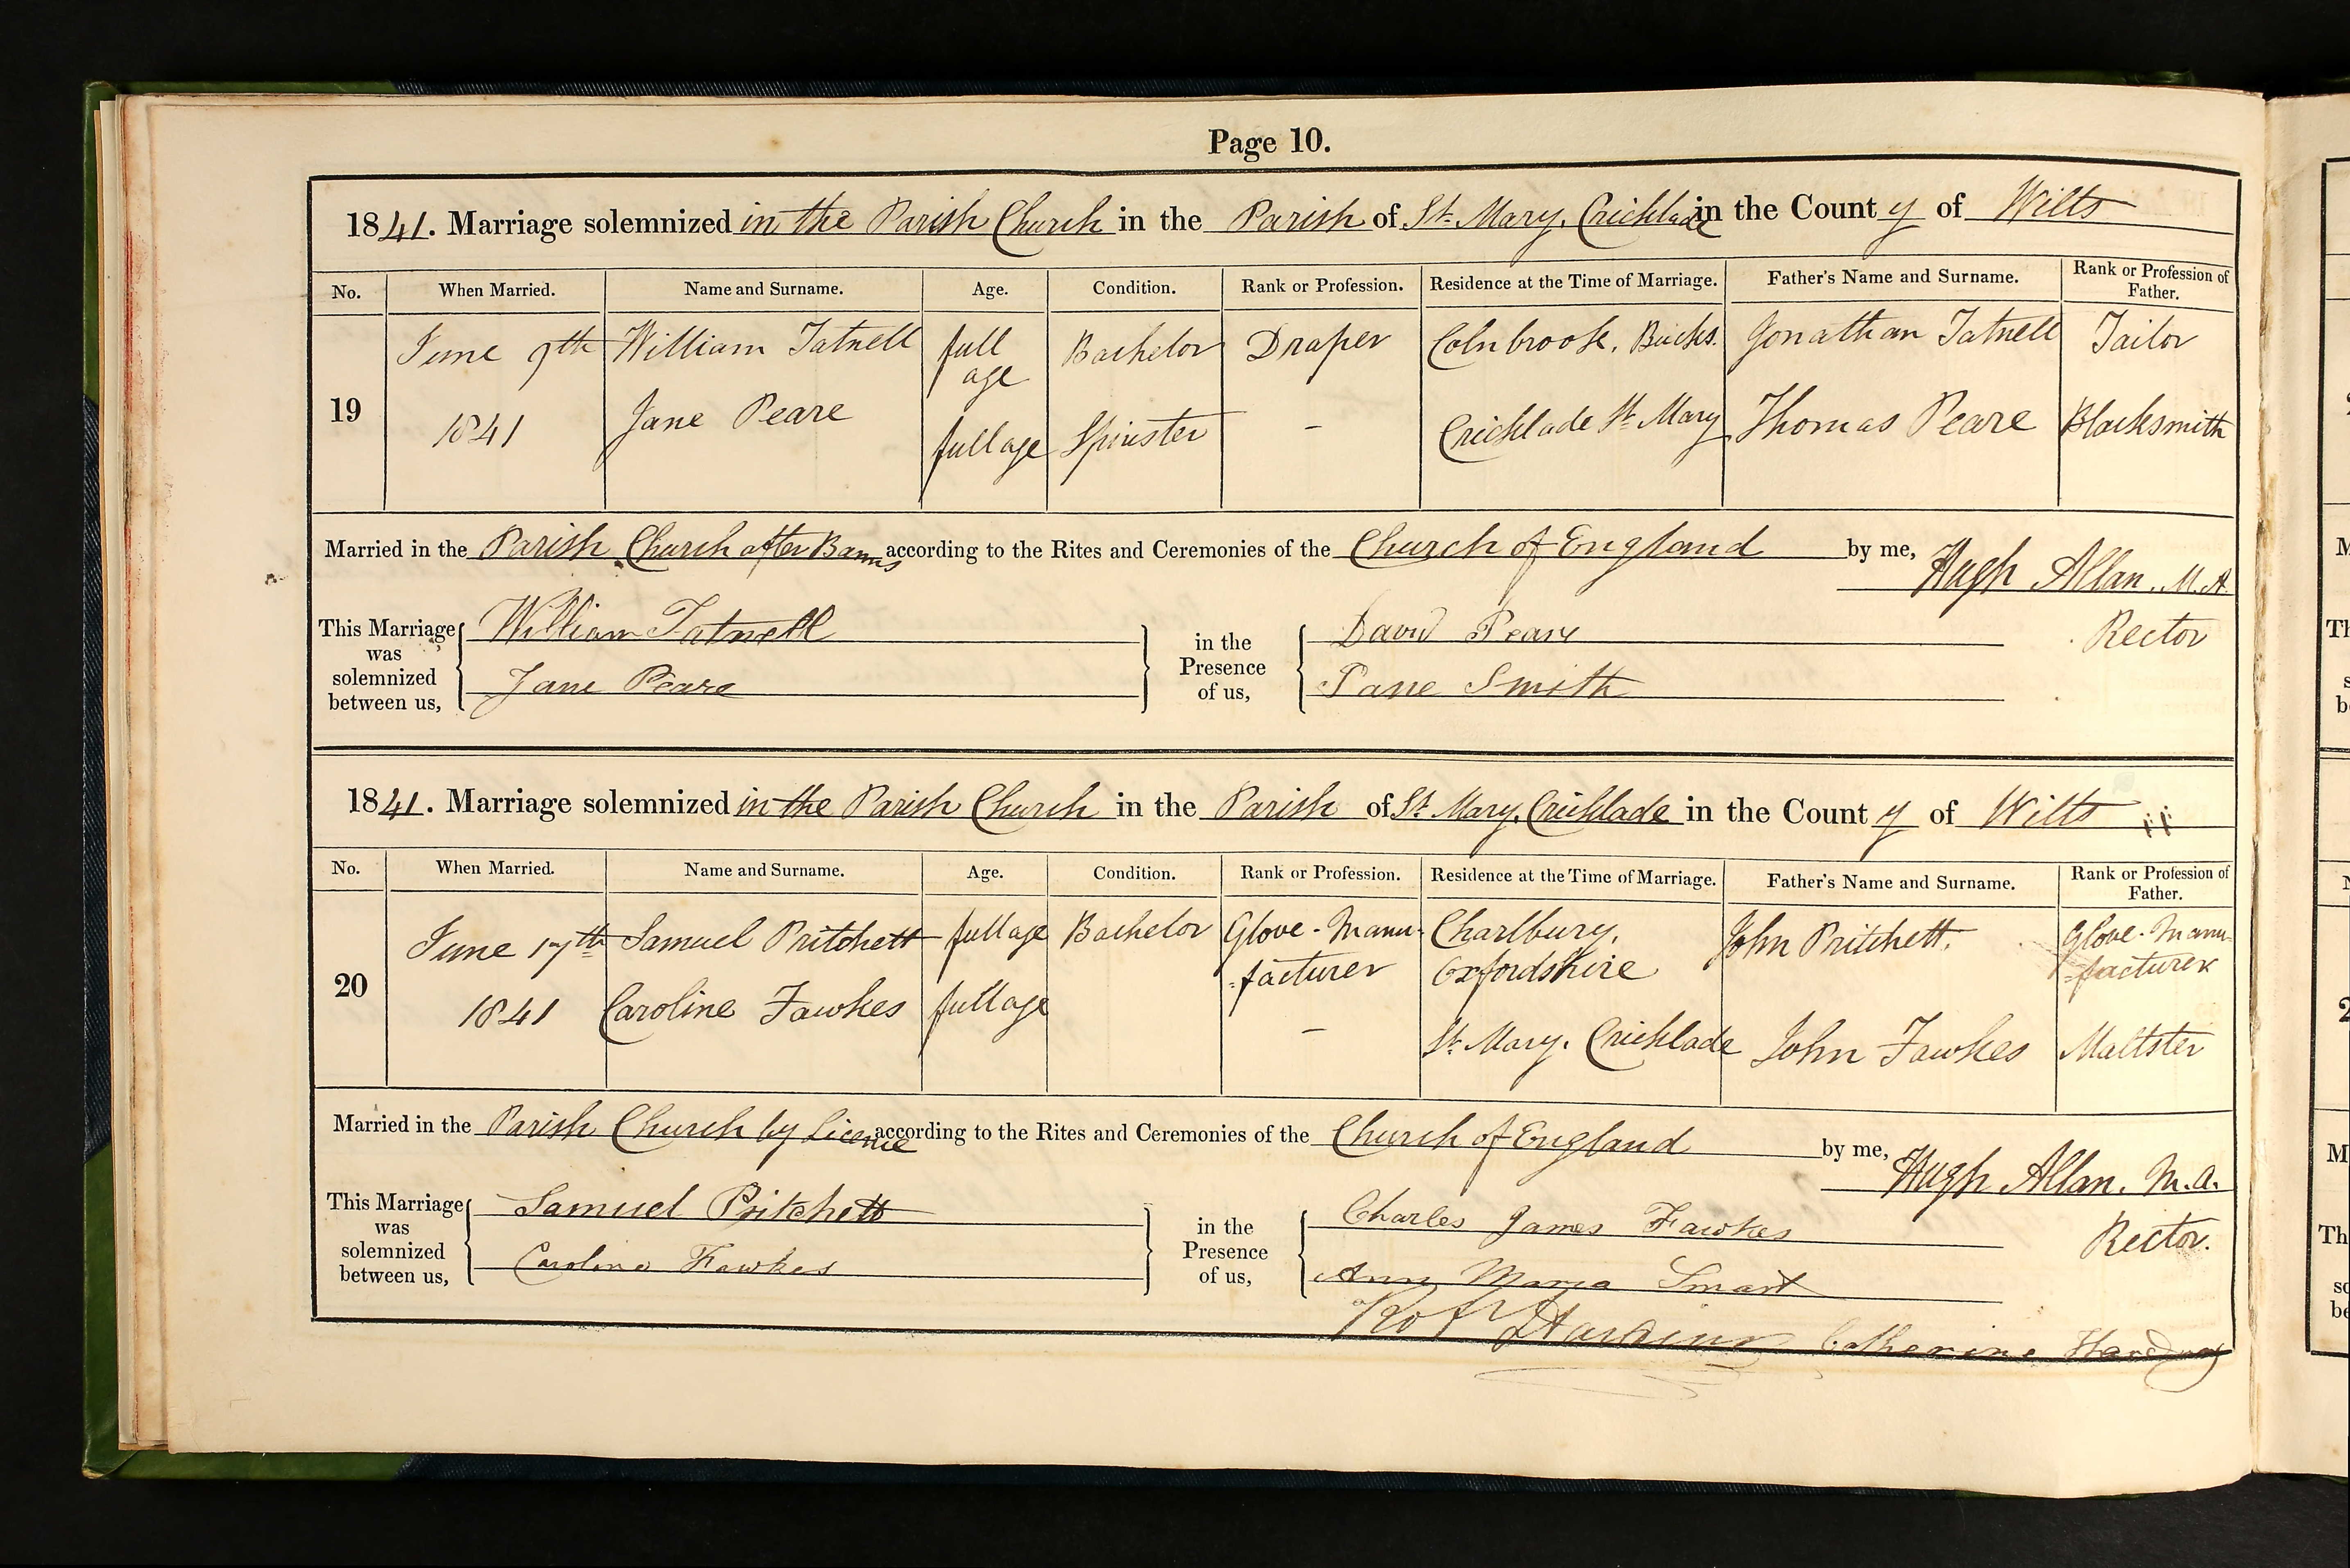 Page 10.
1841. Marriage solemnized in the Parish Church in the Parish of St. Mary, Cricklade in the County of Wilts
No. When Married. Name and Surname. Age. Condition. Rank or Profession. Residence at the Time of Marriage. Father's Name and Surname. Rank or Profession of Father.
19 June 9th 1841 William Tatnell full age Bachelor Draper Colnbrook, Bucks. Jonathan Tatnell Tailor
Jane Peare full age Spinster - Cricklade St. Mary Thomas Peare Blacksmith
Married in the Parish Church after Banns according to the Rites and Ceremonies of the Church of England by me, Hugh Allan, M.A.
Rector
This Marriage was solemnized between us, William Tatnell in the Presence of us, David Peare
Jane Peare Jane Smith
1841. Marriage solemnized in the Parish Church in the Parish of St. Mary, Cricklade in the County of Wilts
No. When Married. Name and Surname. Age. Condition. Rank or Profession. Residence at the Time of Marriage. Father's Name and Surname. Rank or Profession of Father.
20 June 17th 1841 Samuel Pritchett full age Bachelor Glove-Manu-facturer Charlbury, Oxfordshire John Pritchett. Glove-Manu-facturer
Caroline Fawkes full age - St. Mary, Cricklade John Fawkes Maltster
Married in the Parish Church by Licence according to the Rites and Ceremonies of the Church of England by me, Hugh Allan, M.A.
Rector.
This Marriage was solemnized between us, Samuel Pritchett in the Presence of us, Charles James Fawkes
Caroline Fawkes Ann Maria Smart
Catherine